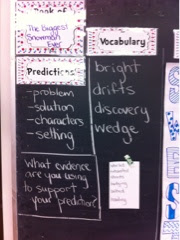 Book of
The Biggest
Snowman
Ever
Predictions
-problem
-solution
-characters
-setting
What evidence
are you using
to support
your prediction?
Vocabulary
bright
drifts
discovery
wedge